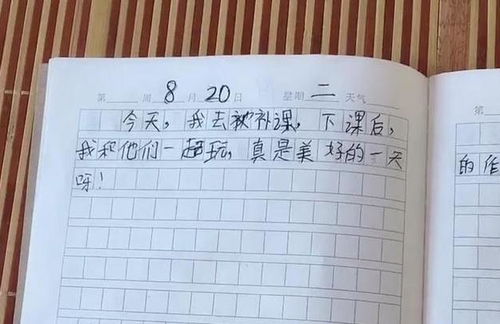 第 周 8 月 20 日 星期 二 天气
今天，我去被补课，下课后，
我和他们一起玩，真是美好的一天
呀！
的作